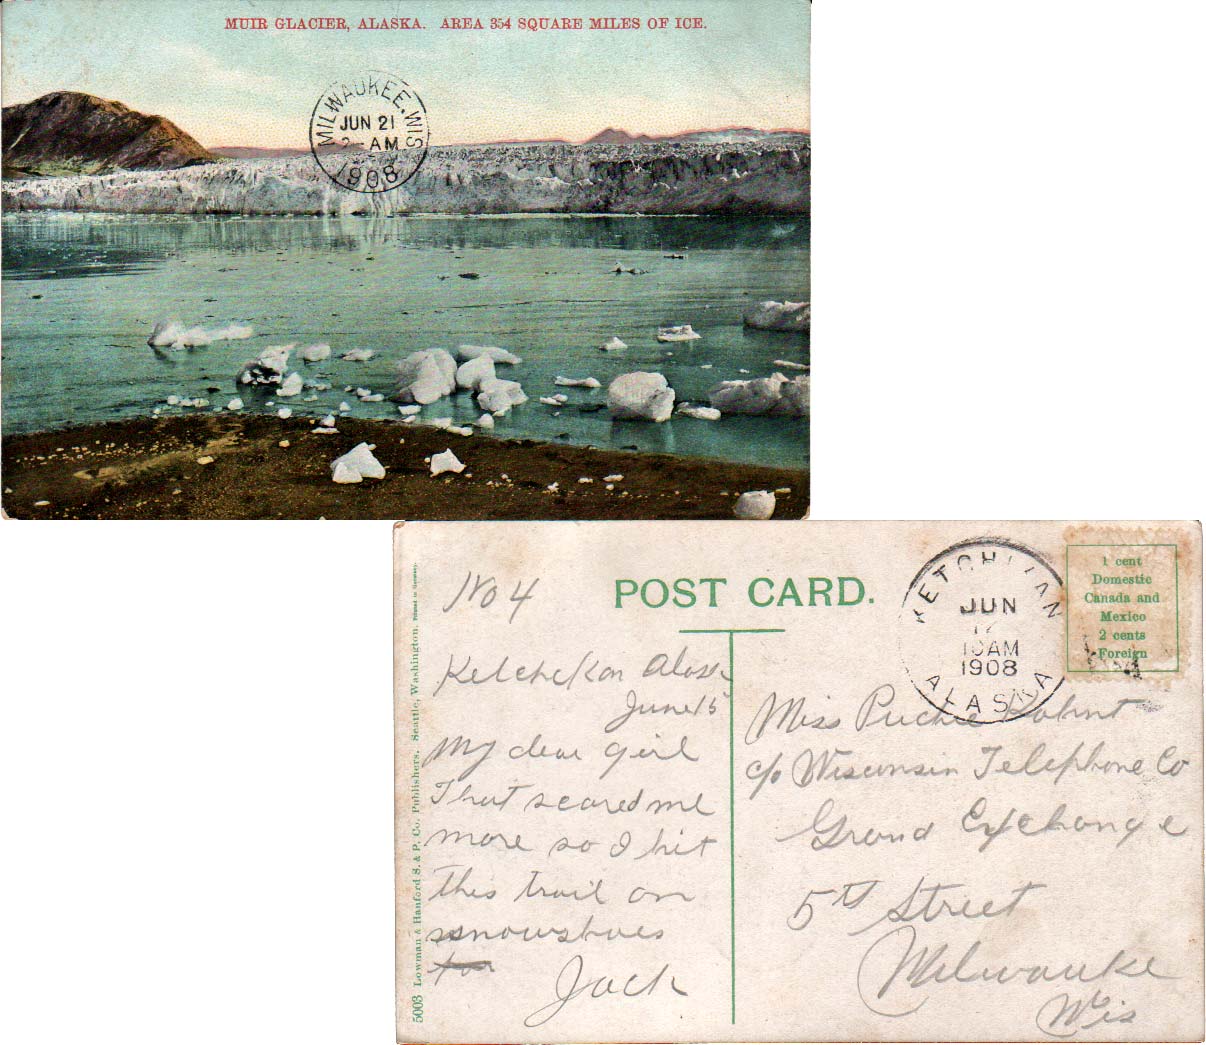 MUIR GLACIER, ALASKA. AREA 354 SQUARE MILES OF ICE.
MILWAUKEE, WIS
JUN 21
2-AM
1908
No 4
POST CARD.
KETCHIKAN
JUN
10AM
1908
ALASKA
1 cent
Domestic
Canada and
Mexico
2 cents
Foreign
Ketchekan Alaska
June 15
My dear girl
That scared me
more so I hit
this trail on
snowshoes
for
Jack
Miss
c/o Wisconsin Telephone Co
Grand Exchange
5th Street
Milwaukee
Wis
5003 Lowman & Hanford S. & P. Co. Publishers. Seattle, Washington. Printed in Germany.